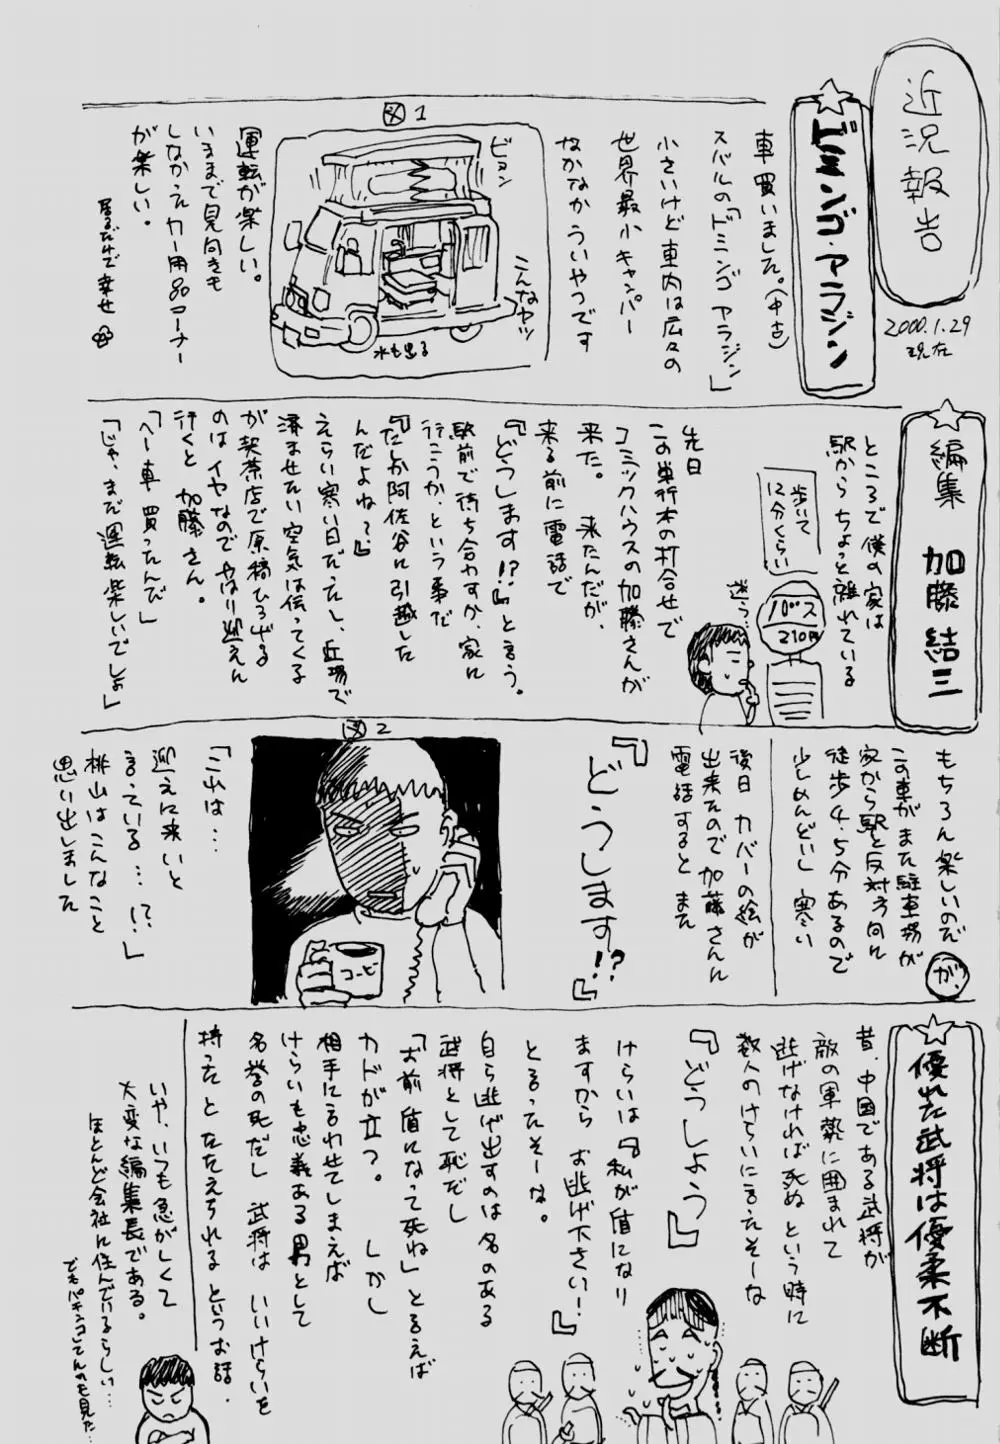 近況報告
2000.1.29
現在
ドミンゴ・アラジン
車買いました。(中古)
スバルの「ドミンゴ アラジン」
小さいけど車内は広々の
世界最小キャンパー
なかなかういやつです
図1
ビヨン
こんなヤツ
水も出る
運転が楽しい。
いままで見向きも
しなかったカー用品コーナー
が楽しい。
居るだけで幸せ
編集 加藤結三
ところで僕の家は
駅からちょっと離れている
歩いて
12分くらい
バス
210円
迷う…
先日
この単行本の打合せで
コミックハウスの加藤さんが
来た。来たんだが、
来る前に電話で
『どうします!?』と言う。
駅前で待ち合わすか、家に
行こうか、という事だ
『たしか阿佐谷に引越した
んだよね?』
えらい寒い日だったし、近場で
済ませたい空気は伝ってくる
が喫茶店で原稿ひろげる
のはイヤなのでやはり迎えに
行くと 加藤さん。
「へー車買ったんだ」
「じゃ、まだ運転楽しいでしょ」
もちろん楽しいのだ
が、
この車がまた駐車場が
家から駅と反対方向に
徒歩4.5分あるので
少しめんどいし寒い
後日 カバーの絵が
出来たので加藤さんに
電話すると また
『どうします!?』
図2
コーヒー
「これは…
迎えに来いと
言っている…!?」
桃山はこんなこと
思い出しました
優れた武将は優柔不断
昔、中国である武将が
敵の軍勢に囲まれて
逃げなければ死ぬという時に
数人のけらいに言えそーな
『どうしよう』
けらいは『私が盾になり
ますから お逃げ下さい!』
と言ったそーな。
自ら逃げ出すのは名のある
武将として恥だし
「お前盾になって死ね」と言えば
カドが立つ。しかし
相手に言わせてしまえば
けらいも忠義ある男として
名誉の死だし 武将は いいけらいを
持ったとたたえられる というお話.
いや、いつも急がしくて
大変な編集長である。
ほとんど会社に住んでいるらしい…
でもパチンコしてんのも見た…